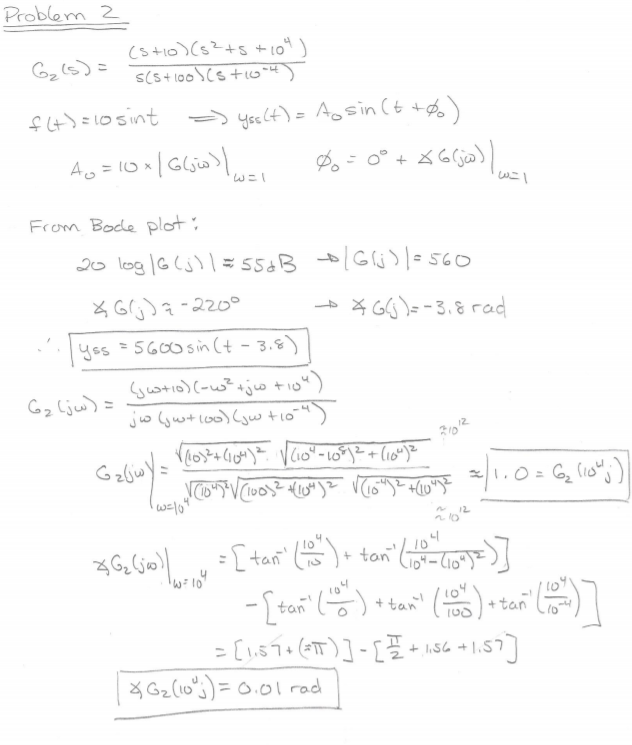 Problem 2
G₂(s) = (s+10)(s²+s+10⁴) / s(s+100)(s+10⁻⁴)
f(t)=10sint ⟹ yss(t) = A₀ sin(t+ϕ₀)
A₀ = 10 × |G(jω)||ω=1   ϕ₀ = 0° + ∡G(jω)|ω=1
From Bode plot:
20 log|G(j)| ≈ 55dB → |G(j)| = 560
∡G(j) ≈ -220° → ∡G(j) = -3.8 rad
∴ yss = 5600 sin(t - 3.8)
G₂(jω) = (jω+10)(-ω²+jω+10⁴) / jω(jω+100)(jω+10⁻⁴)
≈10¹²
G₂(jω)|ω=10⁴ = √((10)²+(10⁴)²) √((10⁴-10⁸)²+(10⁴)²) / √((10⁴)²) √((100)²+(10⁴)²) √((10⁻⁴)²+(10⁴)²) ≈ 1.0 = G₂(10⁴j)
≈10¹²
∡G₂(jω)|ω=10⁴ = [tan⁻¹(10⁴/10) + tan⁻¹(10⁴/10⁴-(10⁴)²)]
- [tan⁻¹(10⁴/0) + tan⁻¹(10⁴/100) + tan⁻¹(10⁴/10⁻⁴)]
= [1.57+(≈π)] - [π/2 + 1.56 + 1.57]
∡G₂(10⁴j) = 0.01 rad